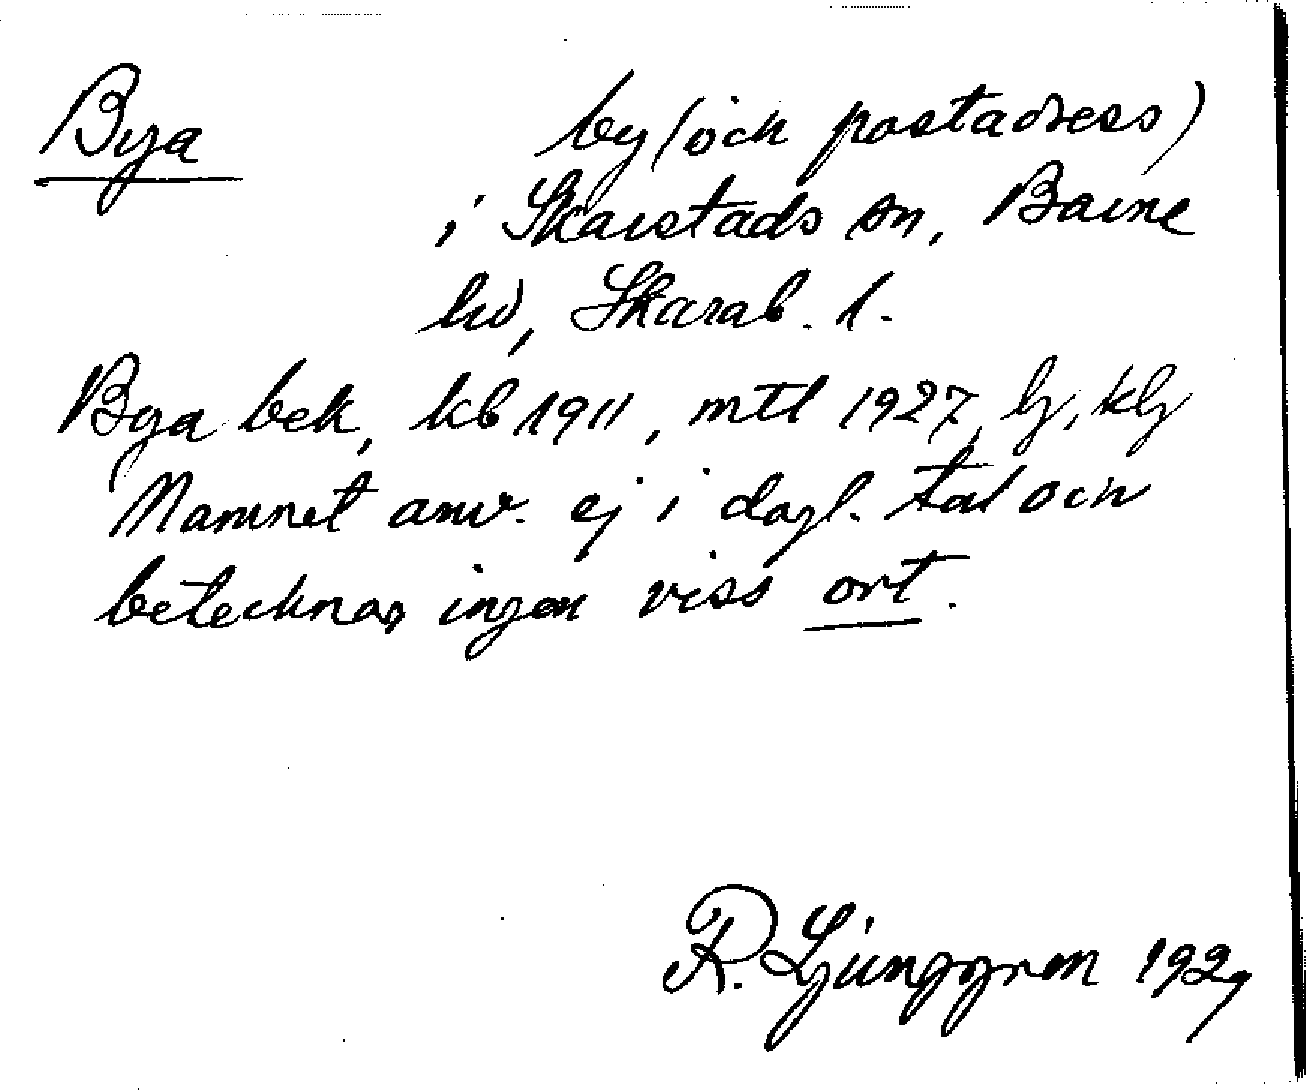 Bya by (och postadress)
i Skarstads sn, Barne
hd, Skarab. l.
Bya bek, kb 1911, mtl 1927, lj, klj
Namnet anv. ej i dagl. tal och
betecknar ingen viss ort.
R. Ljunggren 1927